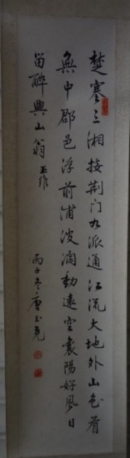 楚塞三湘接荆门九派通江流天地外山色有
無中郡邑浮前浦波瀾動遠空襄陽好風日
留醉與山翁 王維
丙子冬